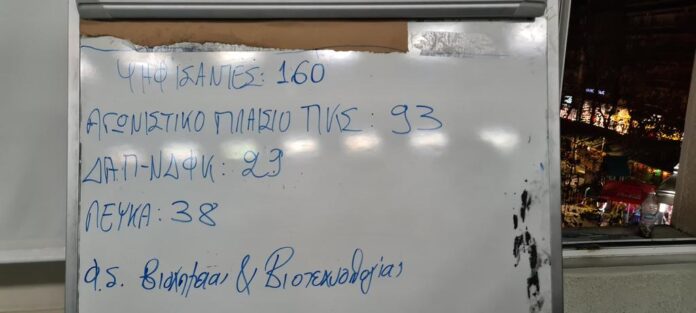 ΨΗΦΙΣΑΝΤΕΣ: 160
ΑΓΩΝΙΣΤΙΚΟ ΠΛΑΙΣΙΟ ΠΚΣ: 93
ΔΑΠ-ΝΔΦΚ: 29
ΛΕΥΚΑ: 38
Φ.Σ. Βιοχημείας & Βιοτεχνολογίας